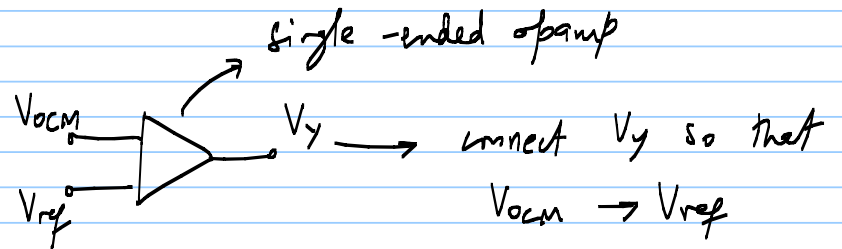 single-ended opamp
V_OCM
V_y → connect V_y so that
V_ref
V_OCM → V_ref